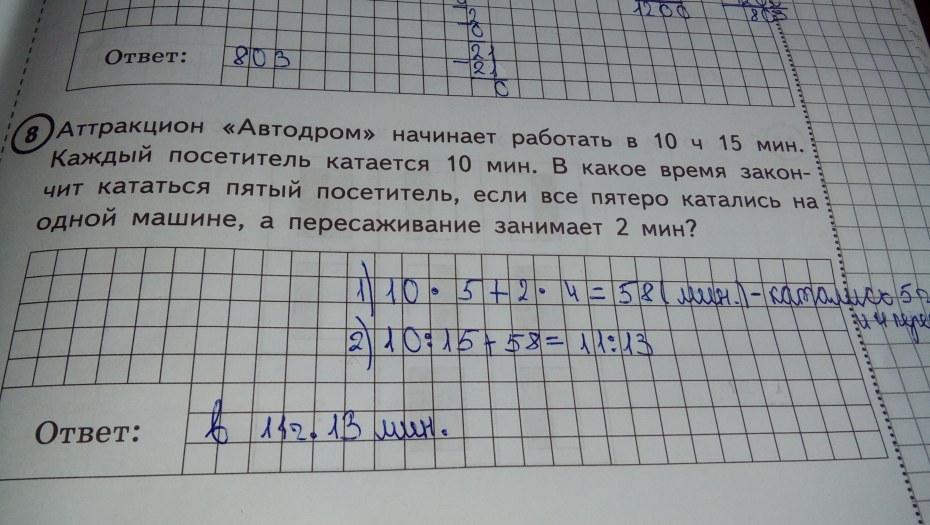 2
0
1200
805
Ответ: 803
21
- 21
0
8 Аттракцион «Автодром» начинает работать в 10 ч 15 мин.
Каждый посетитель катается 10 мин. В какое время закон-
чит кататься пятый посетитель, если все пятеро катались на
одной машине, а пересаживание занимает 2 мин?
1) 10 · 5 + 2 · 4 = 58 (мин.) - катались 5
и 4 пере
2) 10:15 + 58 = 11:13
Ответ: в 11ч. 13 мин.